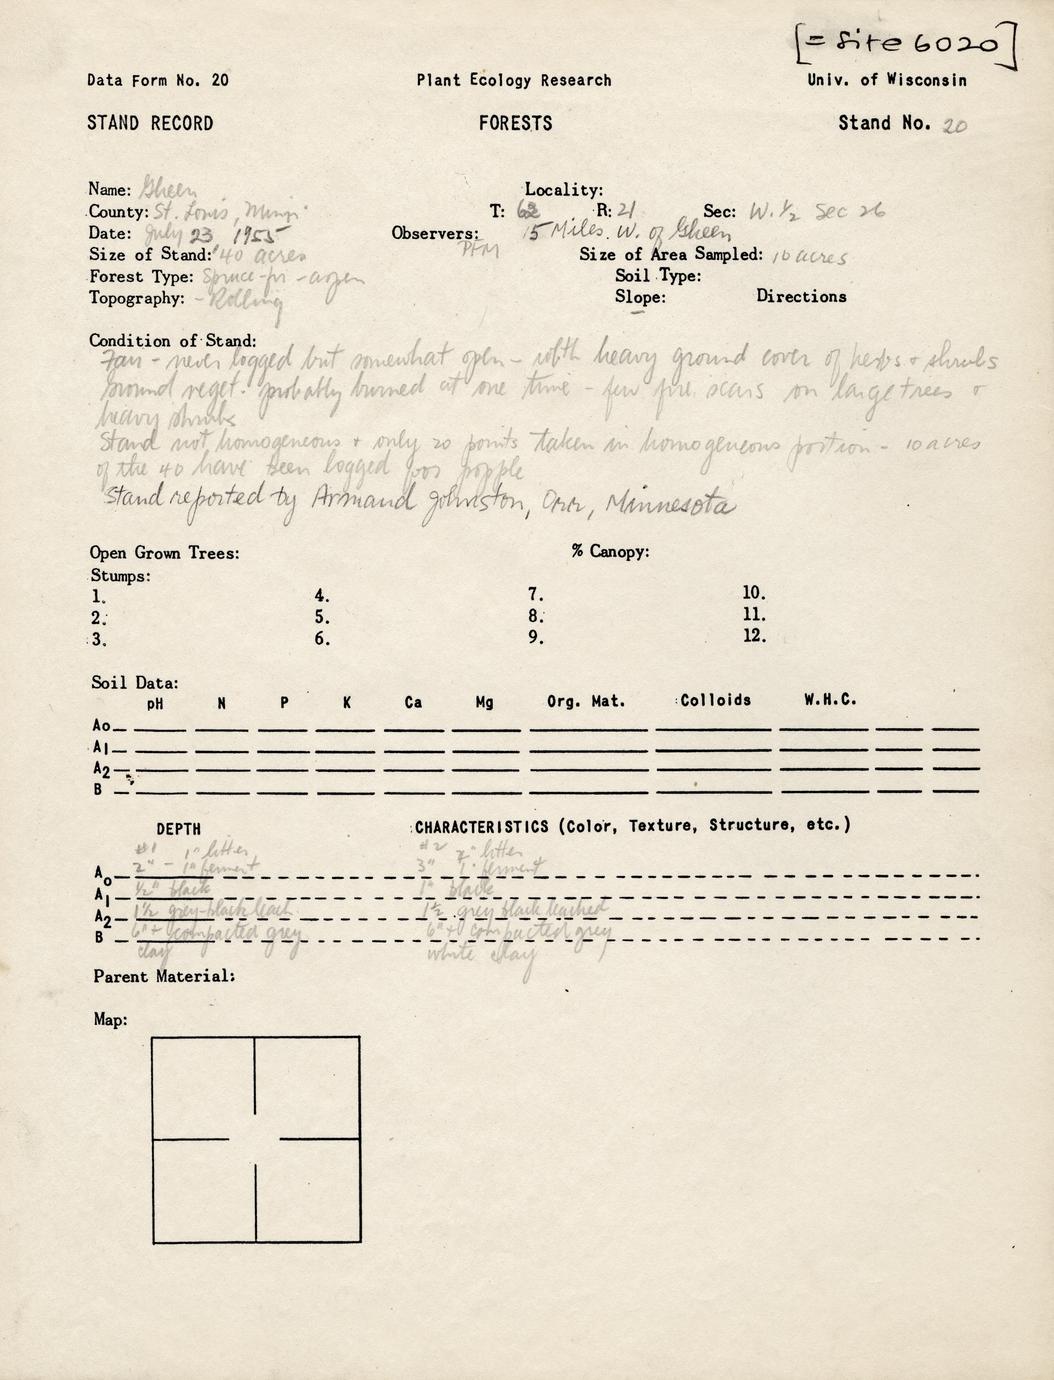 [= Site 6020]
Data Form No. 20 Plant Ecology Research Univ. of Wisconsin
STAND RECORD FORESTS Stand No. 20
Name: Gheen Locality:
County: St. Louis, Minn. T: 62 R: 21 Sec: W. 1/2 Sec 26
Date: July 23 1955 Observers: 15 Miles. W. of Gheen
PFM
Size of Stand: 40 acres Size of Area Sampled: 10 acres
Forest Type: Spruce-fir - aspen Soil Type:
Topography: - Rolling Slope: Directions
Condition of Stand:
Fair - never logged but somewhat open - with heavy ground cover of herbs + shrubs
Ground veget. probably burned at one time - few fire scars on large trees +
heavy shrubs
Stand not homogeneous + only 20 points taken in homogeneous portion - 10 acres
of the 40 have been logged for popple
Stand reported by Armand Johnston, Orr, Minnesota
Open Grown Trees: % Canopy:
Stumps:
1. 4. 7. 10.
2. 5. 8. 11.
3. 6. 9. 12.
Soil Data:
pH N P K Ca Mg Org. Mat. Colloids W.H.C.
Ao
A1
A2
B
DEPTH CHARACTERISTICS (Color, Texture, Structure, etc.)
#1 1" litter #2 2" litter
Ao 2" - 1" ferment 3" 1" ferment
A1 1/2" black 1" black
A2 1 1/2 grey-black leach. 1 1/2 grey black leached
B 6"+ compacted grey 6"+ compacted grey
clay white clay
Parent Material:
Map: